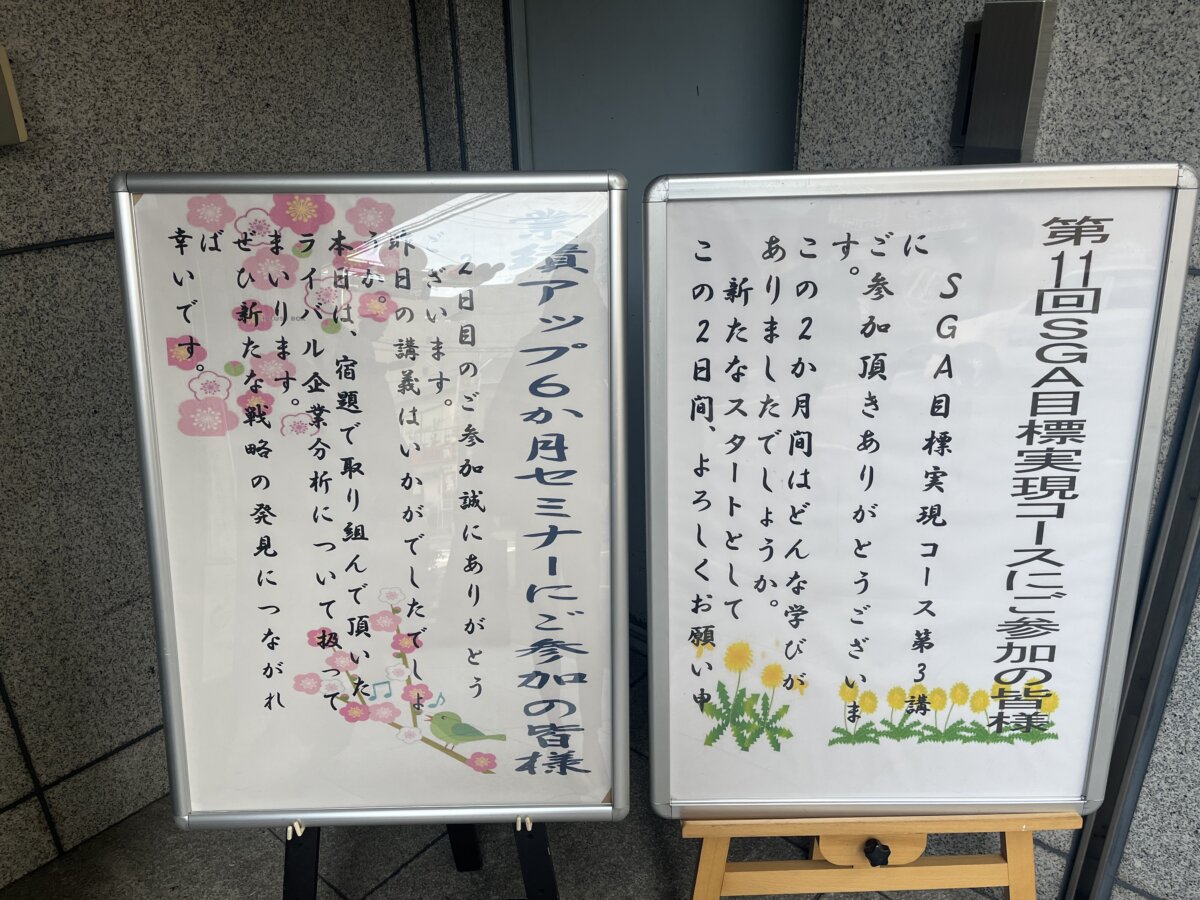 第11回SGA目標実現コースにご参加の皆様
SGA目標実現コース第3講
に
ご参加頂きありがとうございま
す。
この2か月間はどんな学びが
ありましたでしょうか。
新たなスタートとして
この2日間、よろしくお願い申
業績アップ6か月セミナーにご参加の皆様
2日目のご参加誠にありがとう
ございます。
昨日の講義はいかがでしたでしょ
うか。
本日は、宿題で取り組んで頂いた
ライバル企業分析について扱って
まいります。
ぜひ新たな戦略の発見につながれ
ば
幸いです。